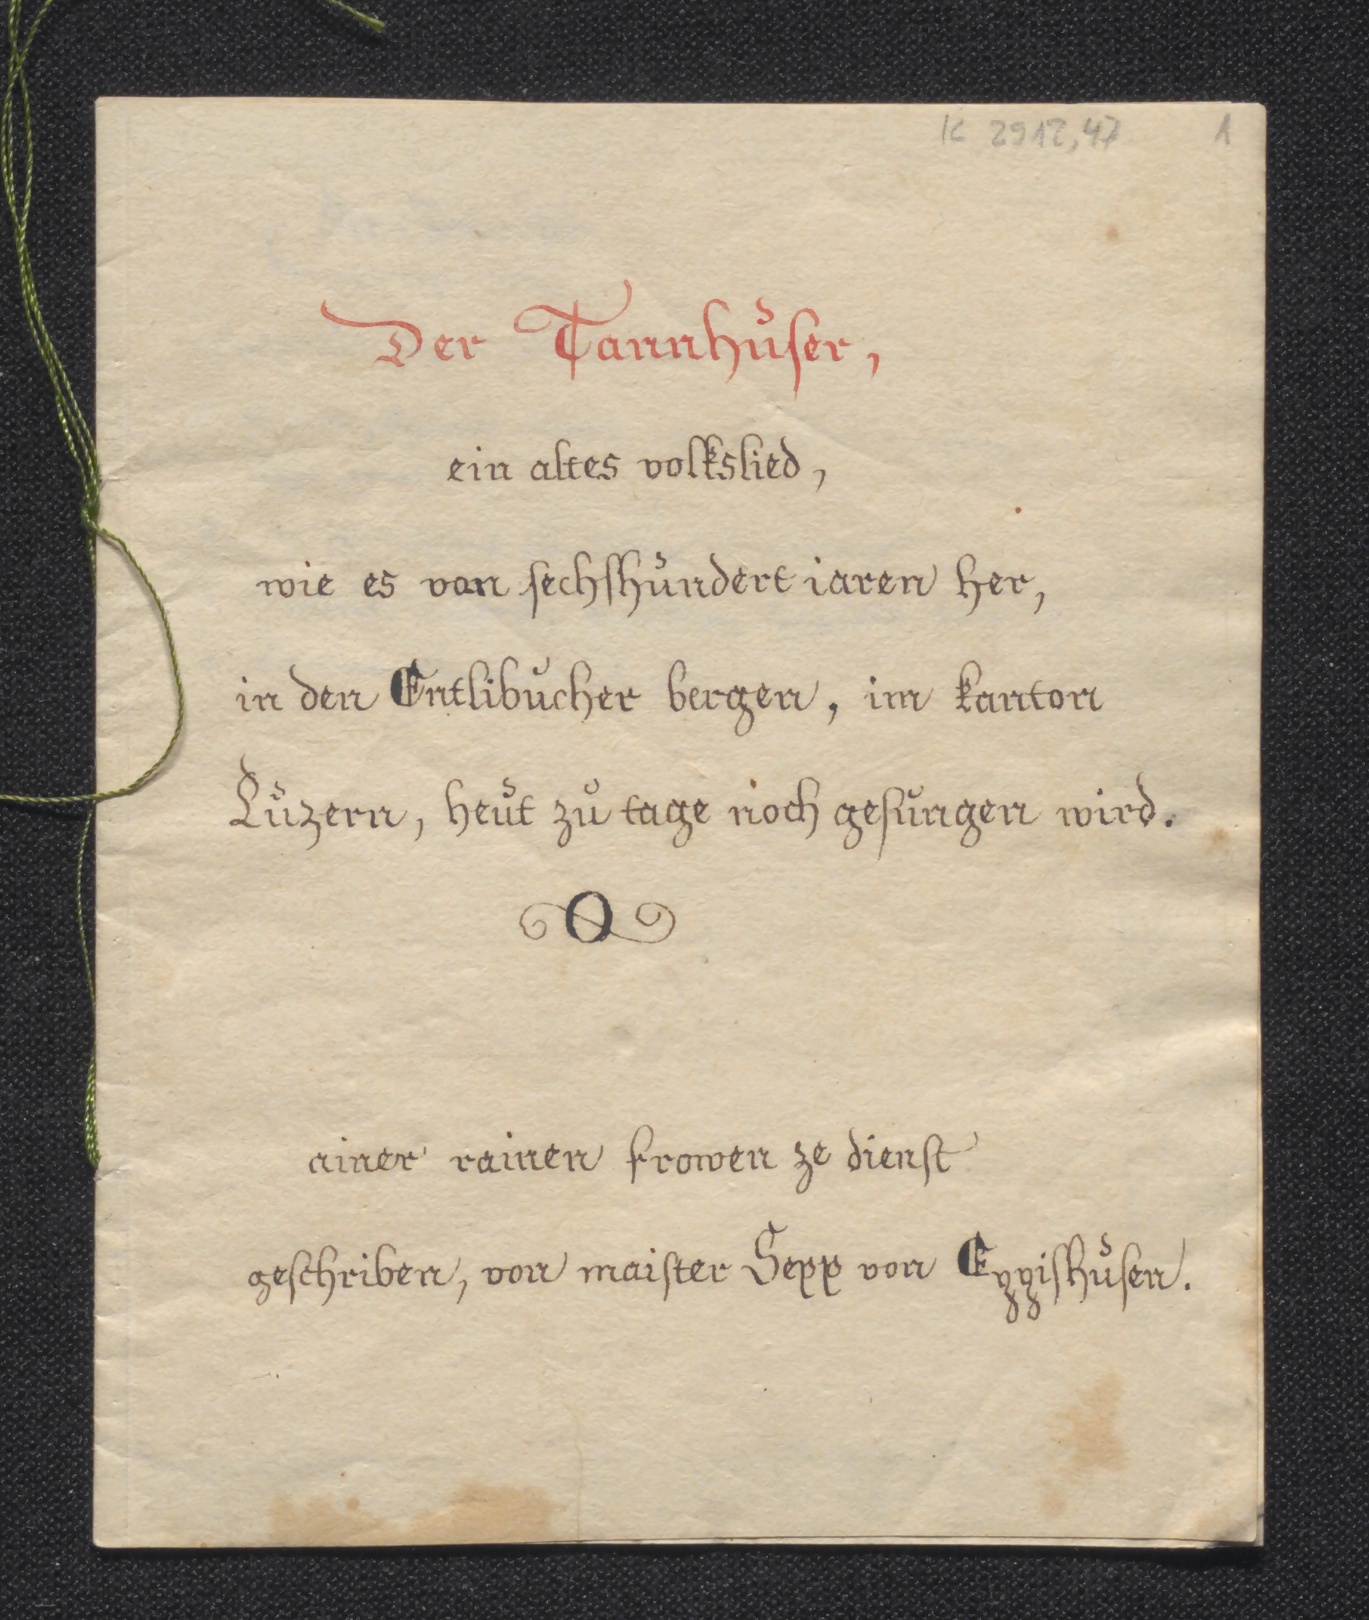 K 2912,47 1
Der Tannhuser,
ein altes volkslied,
wie es von sechshundert iaren her,
in den Entlibucher bergen, im kanton
Luzern, heut zu tage noch gesungen wird.
ainer rainen frowen ze dienst
geschriben, von maister Sepp von Eppishusen.